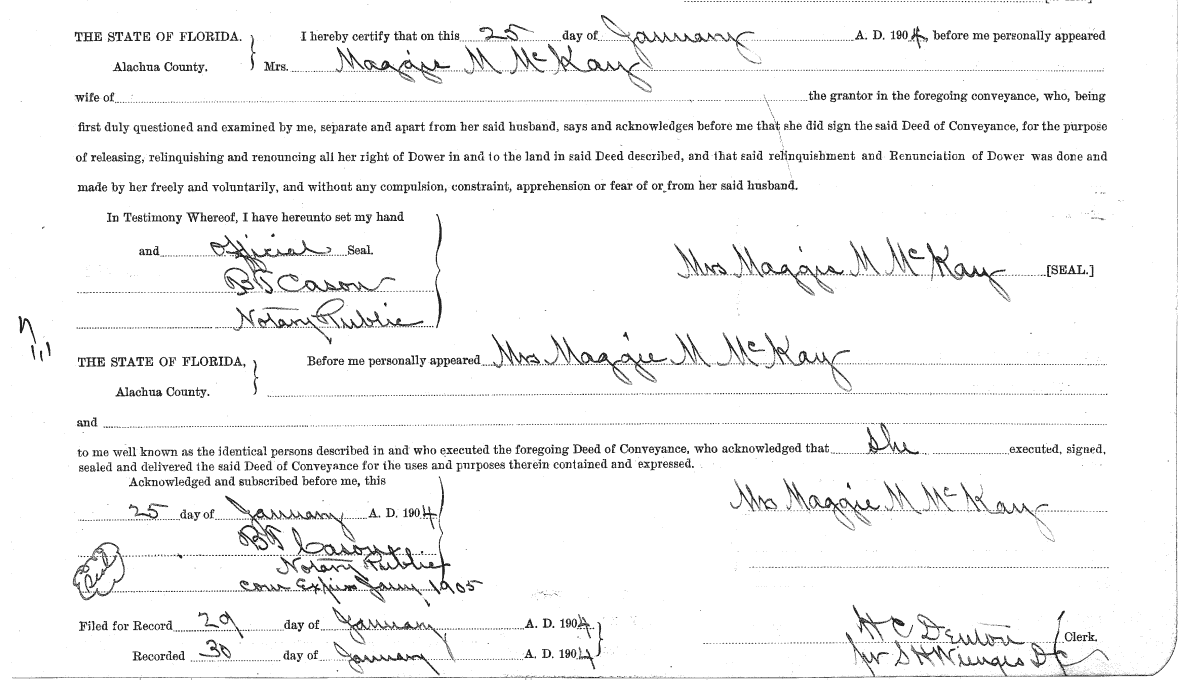 THE STATE OF FLORIDA. I hereby certify that on this 25 day of January A. D. 1904, before me personally appeared
Alachua County. Mrs. Maggie M McKay
wife of the grantor in the foregoing conveyance, who, being
first duly questioned and examined by me, separate and apart from her said husband, says and acknowledges before me that she did sign the said Deed of Conveyance, for the purpose
of releasing, relinquishing and renouncing all her right of Dower in and to the land in said Deed described, and that said relinquishment and Renunciation of Dower was done and
made by her freely and voluntarily, and without any compulsion, constraint, apprehension or fear of or from her said husband.
In Testimony Whereof, I have hereunto set my hand
and Official Seal.
Mrs Maggie M McKay [SEAL.]
B Cason
Notary Public
THE STATE OF FLORIDA, Before me personally appeared Mrs Maggie M McKay
Alachua County.
and
to me well known as the identical persons described in and who executed the foregoing Deed of Conveyance, who acknowledged that she executed, signed,
sealed and delivered the said Deed of Conveyance for the uses and purposes therein contained and expressed.
Acknowledged and subscribed before me, this
Mrs Maggie M McKay
25 day of January A. D. 1904
B Cason
Notary Public
Seal
com Expires Jany 1905
Filed for Record 29 day of January A. D. 1904
H C Denton Clerk.
Recorded 30 day of January A. D. 1904
per S H Wienges D C